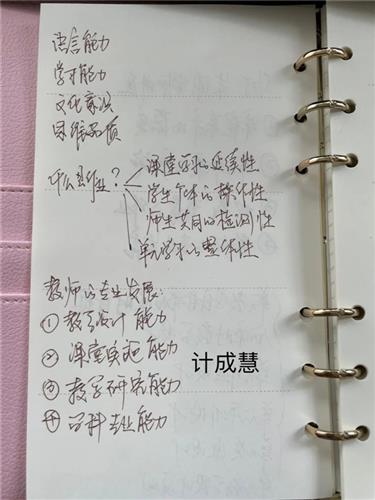 语言能力
学习能力
文化意识
思维品质
什么是作业?
课堂学习的延续性
学生个体的差体性
师生共同的检测性
单元学习的整体性
教师的专业发展:
① 教学设计能力
② 课堂实施能力
③ 教学研究能力
④ 学科专业能力
计成慧